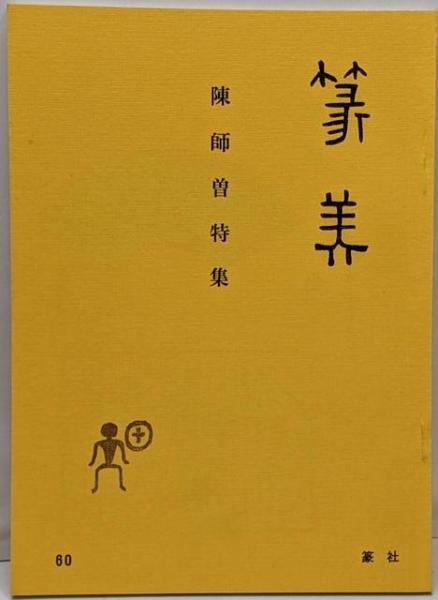 篆美
陳師曽特集
60
篆社